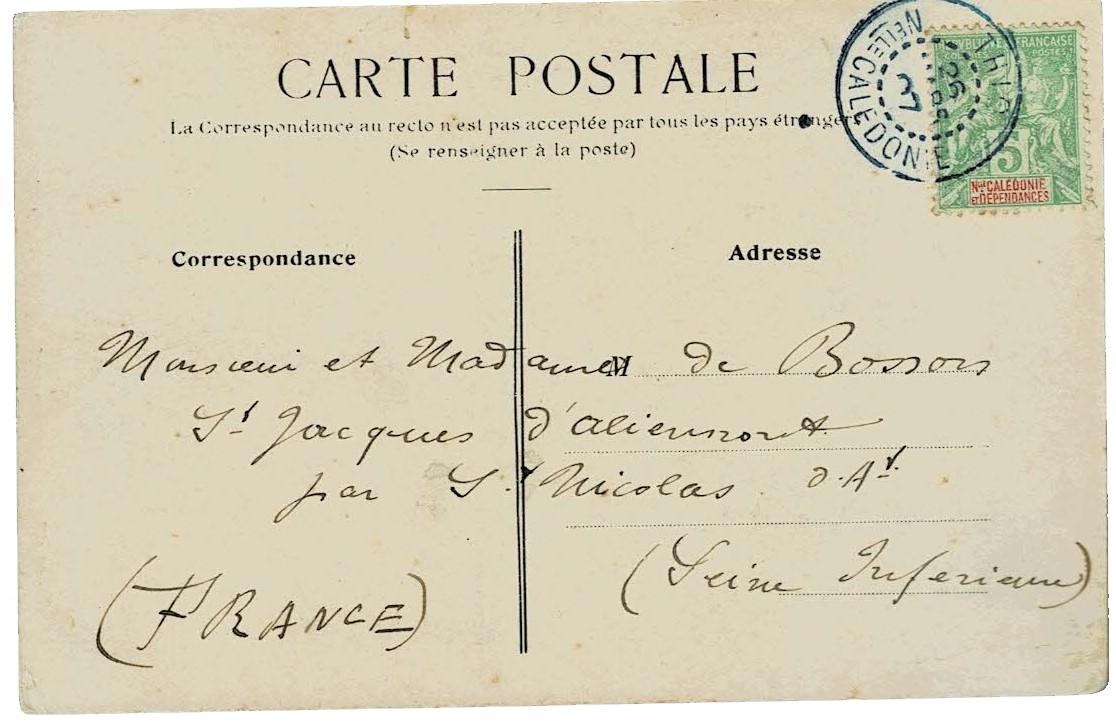 CARTE POSTALE
La Correspondance au recto n'est pas acceptée par tous les pays étrangers
(Se renseigner à la poste)
Correspondance
Adresse
M
Monsieur et Madame de Bossois
St Jacques d'aliermont
par St Nicolas d. At
(Seine Inferieure)
(FRANCE)
THIO
26
07
Nelle CALEDONIE
REPUBLIQUE FRANCAISE
POSTES
5
Nlle CALÉDONIE
ET DÉPENDANCES